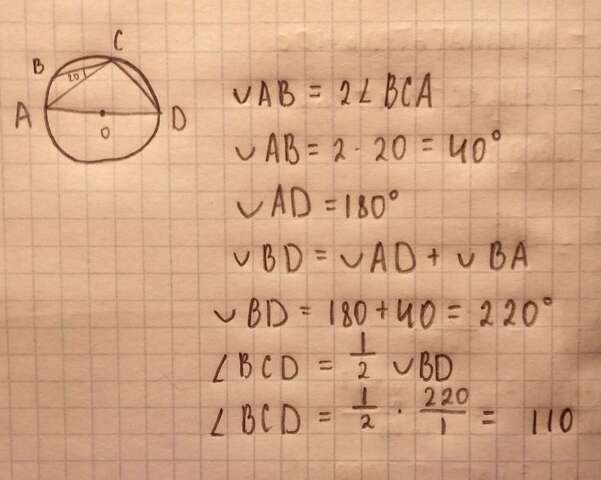 C
B
20
A
O
D
◡AB = 2∠BCA
◡AB = 2 · 20 = 40°
◡AD = 180°
◡BD = ◡AD + ◡BA
◡BD = 180 + 40 = 220°
∠BCD = 1/2 ◡BD
∠BCD = 1/2 · 220/1 = 110